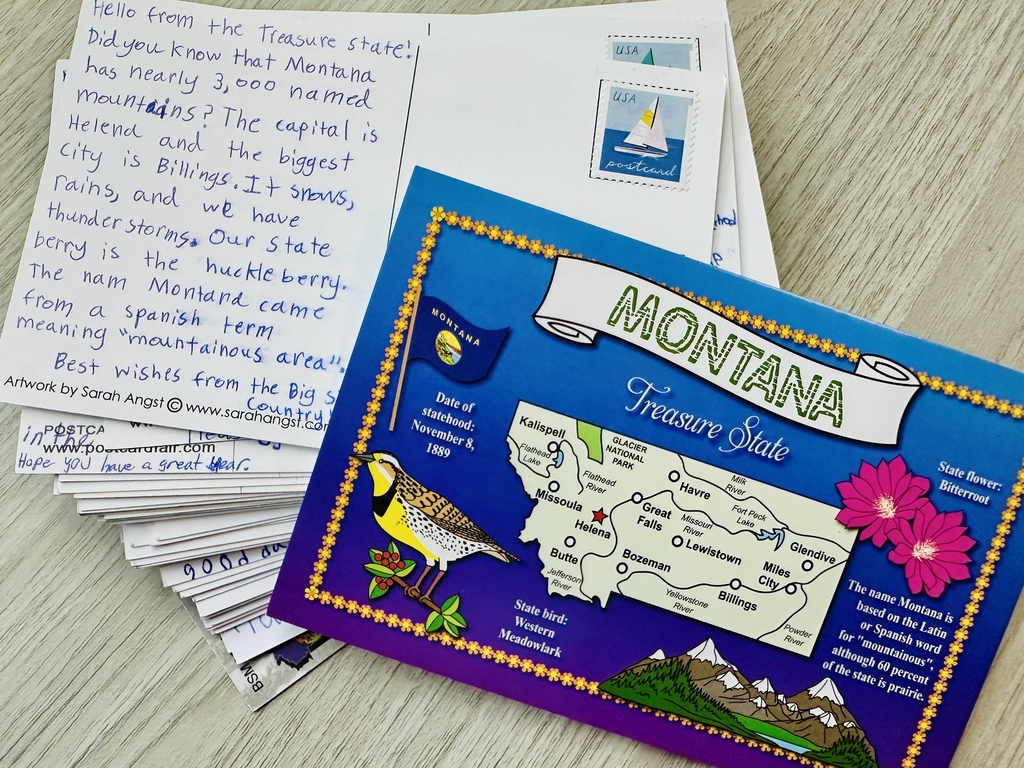 Hello from the Treasure state!
Did you know that Montana
has nearly 3,000 named
mountains? The capital is
Helena and the biggest
city is Billings. It snows,
rains, and we have
thunderstorms. Our state
berry is the huckleberry.
The nam Montana came
from a spanish term
meaning "mountainous area".
Best wishes from the Big S
Country!
Artwork by Sarah Angst © www.sarahangst.co
USA
USA
postcard
POSTCA
in the
www.postcardfair.com
Hope you have a great year.
good da
BSM
MONTANA
Treasure State
MONTANA
Date of
statehood:
November 8,
1889
Kalispell
GLACIER
NATIONAL
PARK
Flathead
Lake
Flathead
River
Havre
Milk
River
Missoula
Great
Falls
Missouri
River
Fort Peck
Lake
Helena
Lewistown
Glendive
Butte
Bozeman
Miles
City
Jefferson
River
Billings
Yellowstone
River
Powder
River
State flower:
Bitterroot
State bird:
Western
Meadowlark
The name Montana is
based on the Latin
or Spanish word
for "mountainous",
although 60 percent
of the state is prairie.